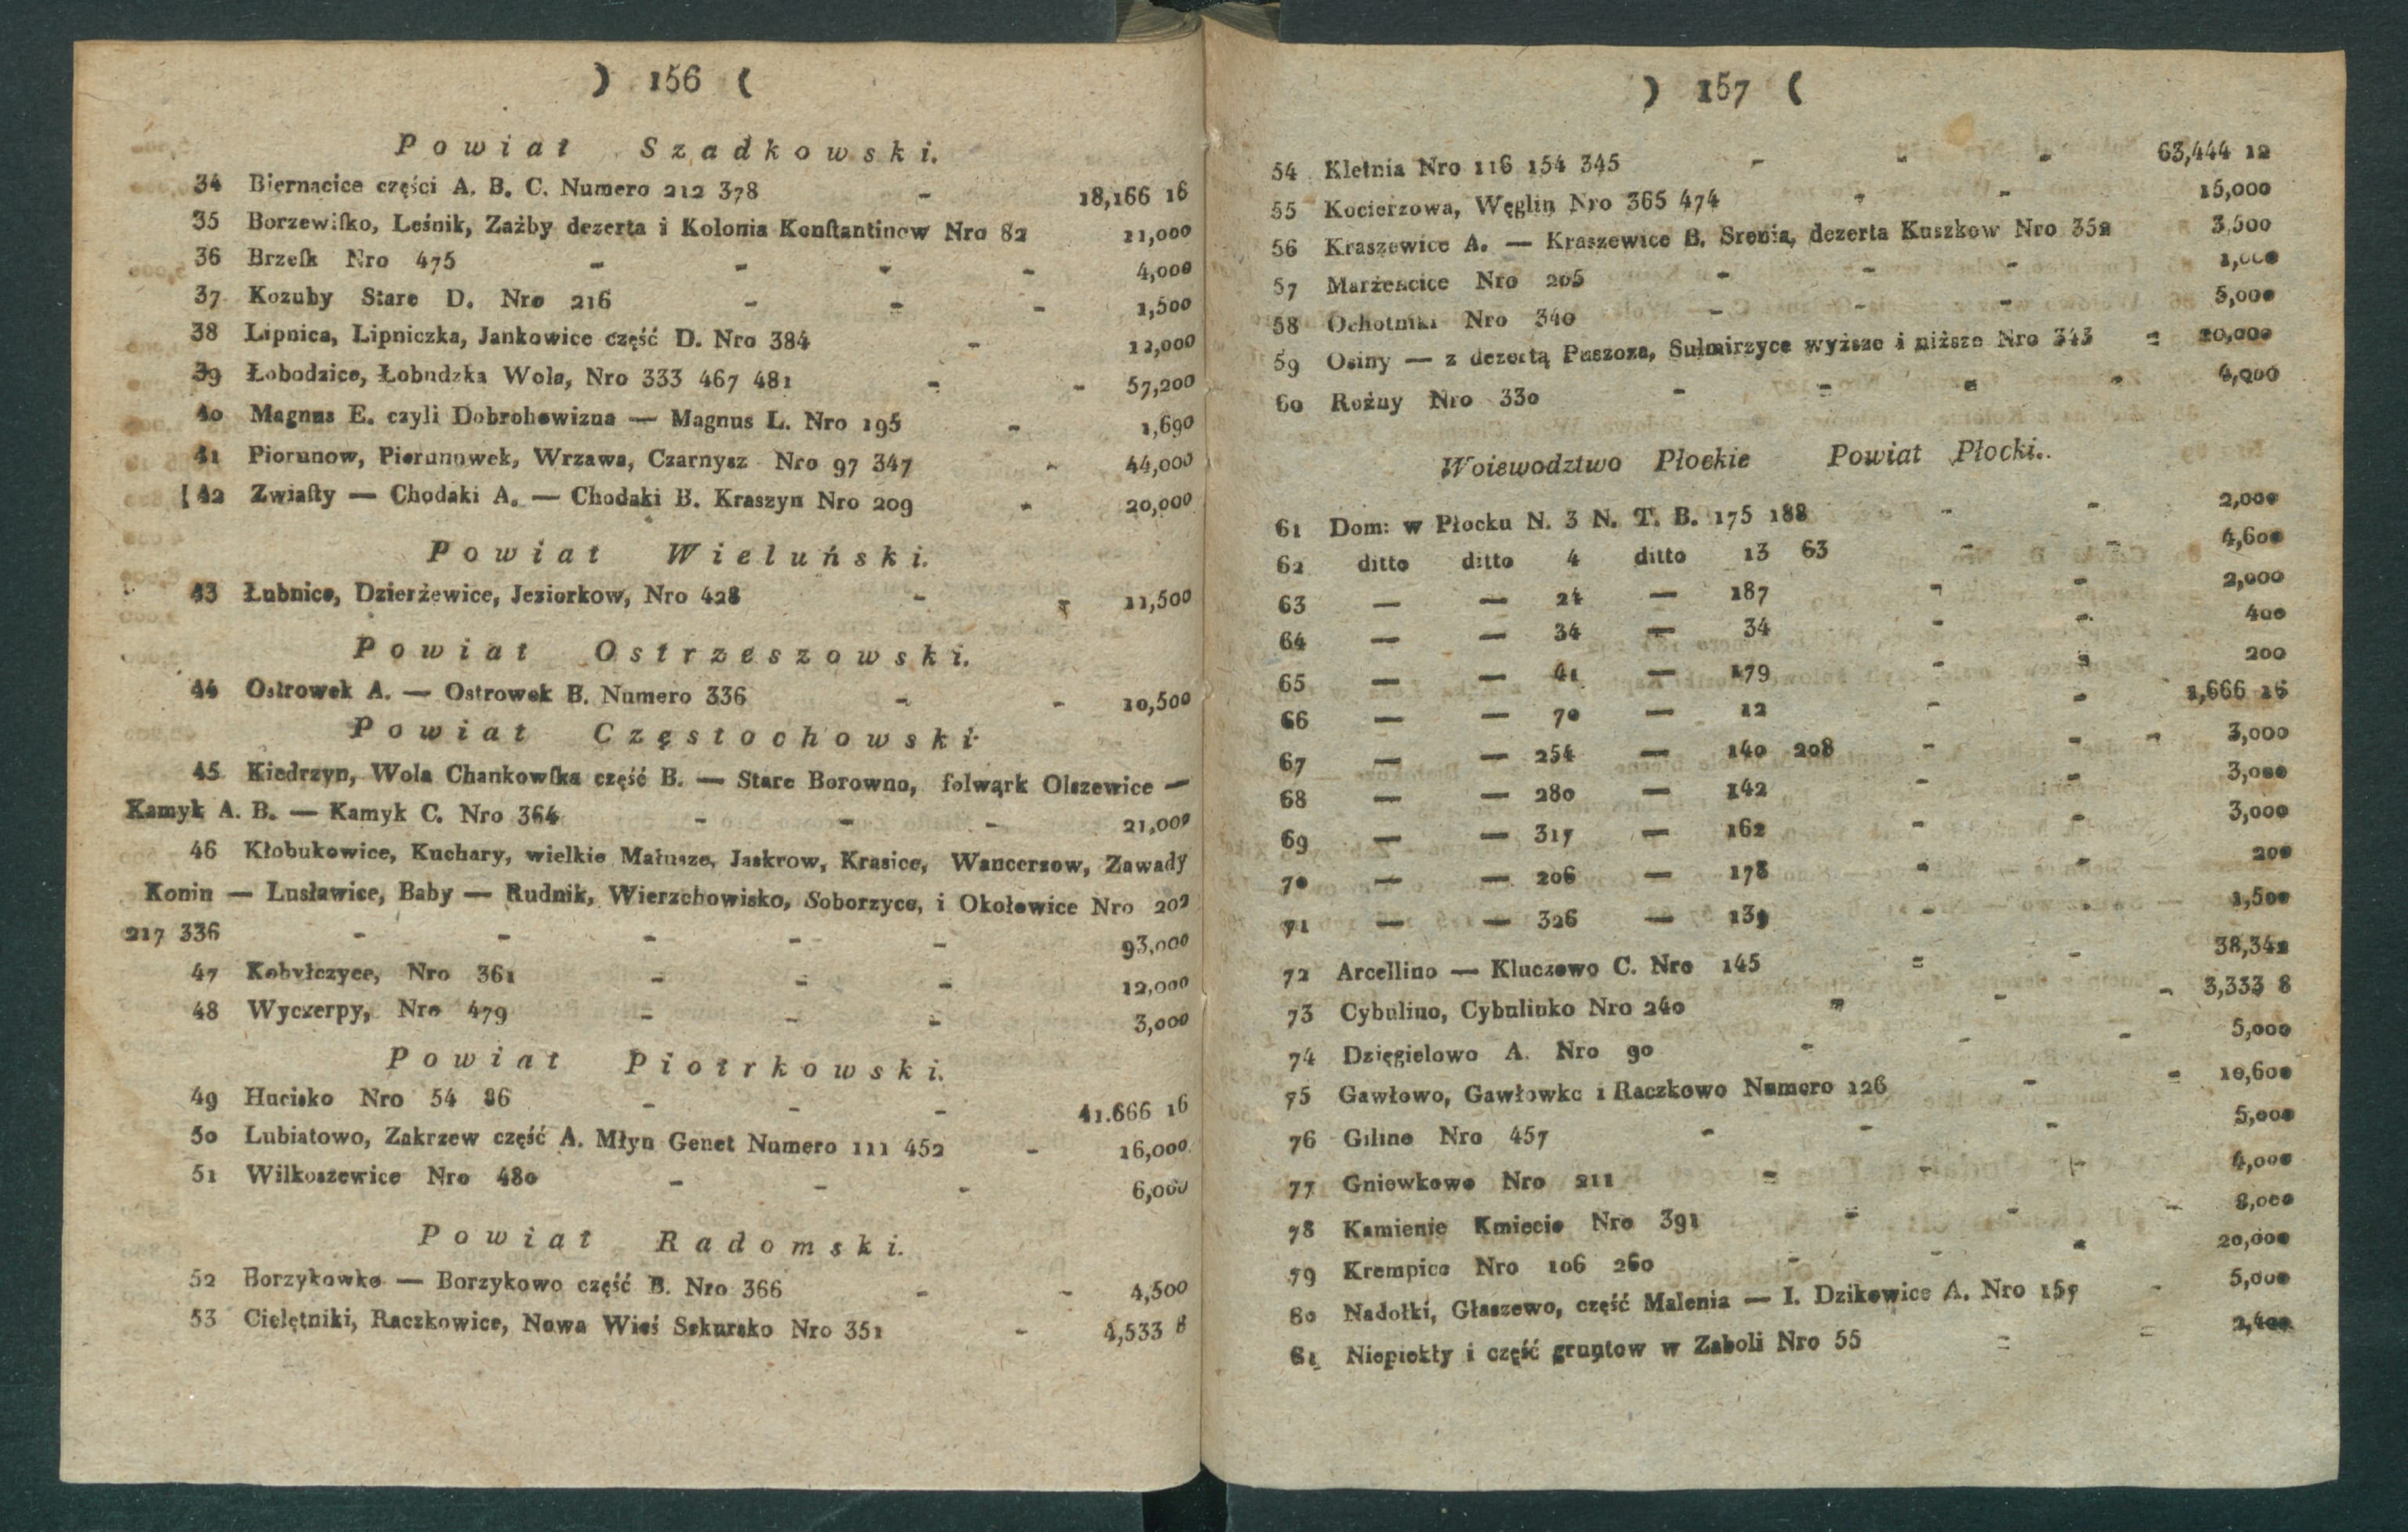 ) 156 (
Powiat Szadkowski.
34 Biernacice części A. B. C. Numero 212 378 - 18,166 16
35 Borzewiſko, Leśnik, Zażby dezerta i Kolonia Konſtantinow Nro 82 11,000
36 Brzeſk Nro 475 - - - - 4,000
37 Kozuby Stare D. Nro 216 - - - 1,500
38 Lipnica, Lipniczka, Jankowice część D. Nro 384 - 12,000
39 Łobodzice, Łobudzka Wola, Nro 333 467 481 - - 57,200
40 Magnus E. czyli Dobrohowizna — Magnus L. Nro 195 - 1,690
41 Piorunow, Piorunowek, Wrzawa, Czarnysz Nro 97 347 - 44,000
42 Zwiaſty — Chodaki A. — Chodaki B. Kraszyn Nro 209 - 20,000
Powiat Wieluński.
43 Łubnice, Dzierżewice, Jeziorkow, Nro 428 - - 11,500
Powiat Ostrzeszowski.
44 Ostrowek A. — Ostrowek B. Numero 336 - - 10,500
Powiat Częstochowski
45 Kiedrzyn, Wola Chankowſka część B. — Stare Borowno, folwąrk Olszewice —
Kamyk A. B. — Kamyk C. Nro 364 - - - 21,000
46 Kłobukowice, Kuchary, wielkie Małusze, Jaskrow, Krasice, Wancerzow, Zawady
Konin — Lusławice, Baby — Rudnik, Wierzchowisko, Soborzyce, i Okołowice Nro 202
217 336 - - - - - 93,000
47 Kobyłczyce, Nro 361 - - - 12,000
48 Wyczerpy, Nro 479 - - - 3,000
Powiat Piotrkowski.
49 Hucisko Nro 54 86 - - - 41.666 16
50 Lubiatowo, Zakrzew część A. Młyn Genet Numero 111 452 - 16,000
51 Wilkoszewice Nro 480 - - - 6,000
Powiat Radomski.
52 Borzykowko — Borzykowo część B. Nro 366 - - 4,500
53 Cielętniki, Raczkowice, Nowa Wieś Sekursko Nro 351 - 4,533 8
) 157 (
54 Kletnia Nro 116 154 345 - - - 63,444 12
55 Kocierzowa, Węglin Nro 365 474 - - 15,000
56 Kraszewice A. — Kraszewice B. Srenia, dezerta Kuszkow Nro 352 3,500
57 Marzencice Nro 205 - - - 1,000
58 Ochotniki Nro 340 - - - 5,000
59 Osiny — z dezertą Puszoza, Sulmirzyce wyższe i niższe Nro 343 - 20,000
60 Rożny Nro 330 - - - - 4,000
Woiewodztwo Płockie Powiat Płocki.
61 Dom: w Płocku N. 3 N. T. B. 175 188 - - 2,000
62 ditto ditto 4 ditto 13 63 - - 4,600
63 — — 24 — 187 - - 2,000
64 — — 34 — 34 - - 400
65 — — 41 — 179 - - 200
66 — — 70 — 12 - - 1,666 16
67 — — 254 — 140 208 - - - 3,000
68 — — 280 — 142 - - 3,000
69 — — 317 — 162 - - 3,000
70 — — 206 — 178 - - 200
71 — — 326 — 139 - - 1,500
72 Arcellino — Kluczewo C. Nro 145 - - 38,342
73 Cybulino, Cybulinko Nro 240 - - - 3,333 8
74 Dzięgielowo A. Nro 90 - - - 5,000
75 Gawłowo, Gawłowko i Raczkowo Numero 126 - - 10,600
76 Gilino Nro 457 - - - 5,000
77 Gniewkowo Nro 211 - - - 4,000
78 Kamienie Kmiecie Nro 391 - - - 8,000
79 Krempice Nro 106 260 - - - 20,000
80 Nadołki, Głaszewo, część Malenia — I. Dzikowice A. Nro 157 - 5,000
81 Niepiekły i część gruntow w Zaboli Nro 55 - - 2,400